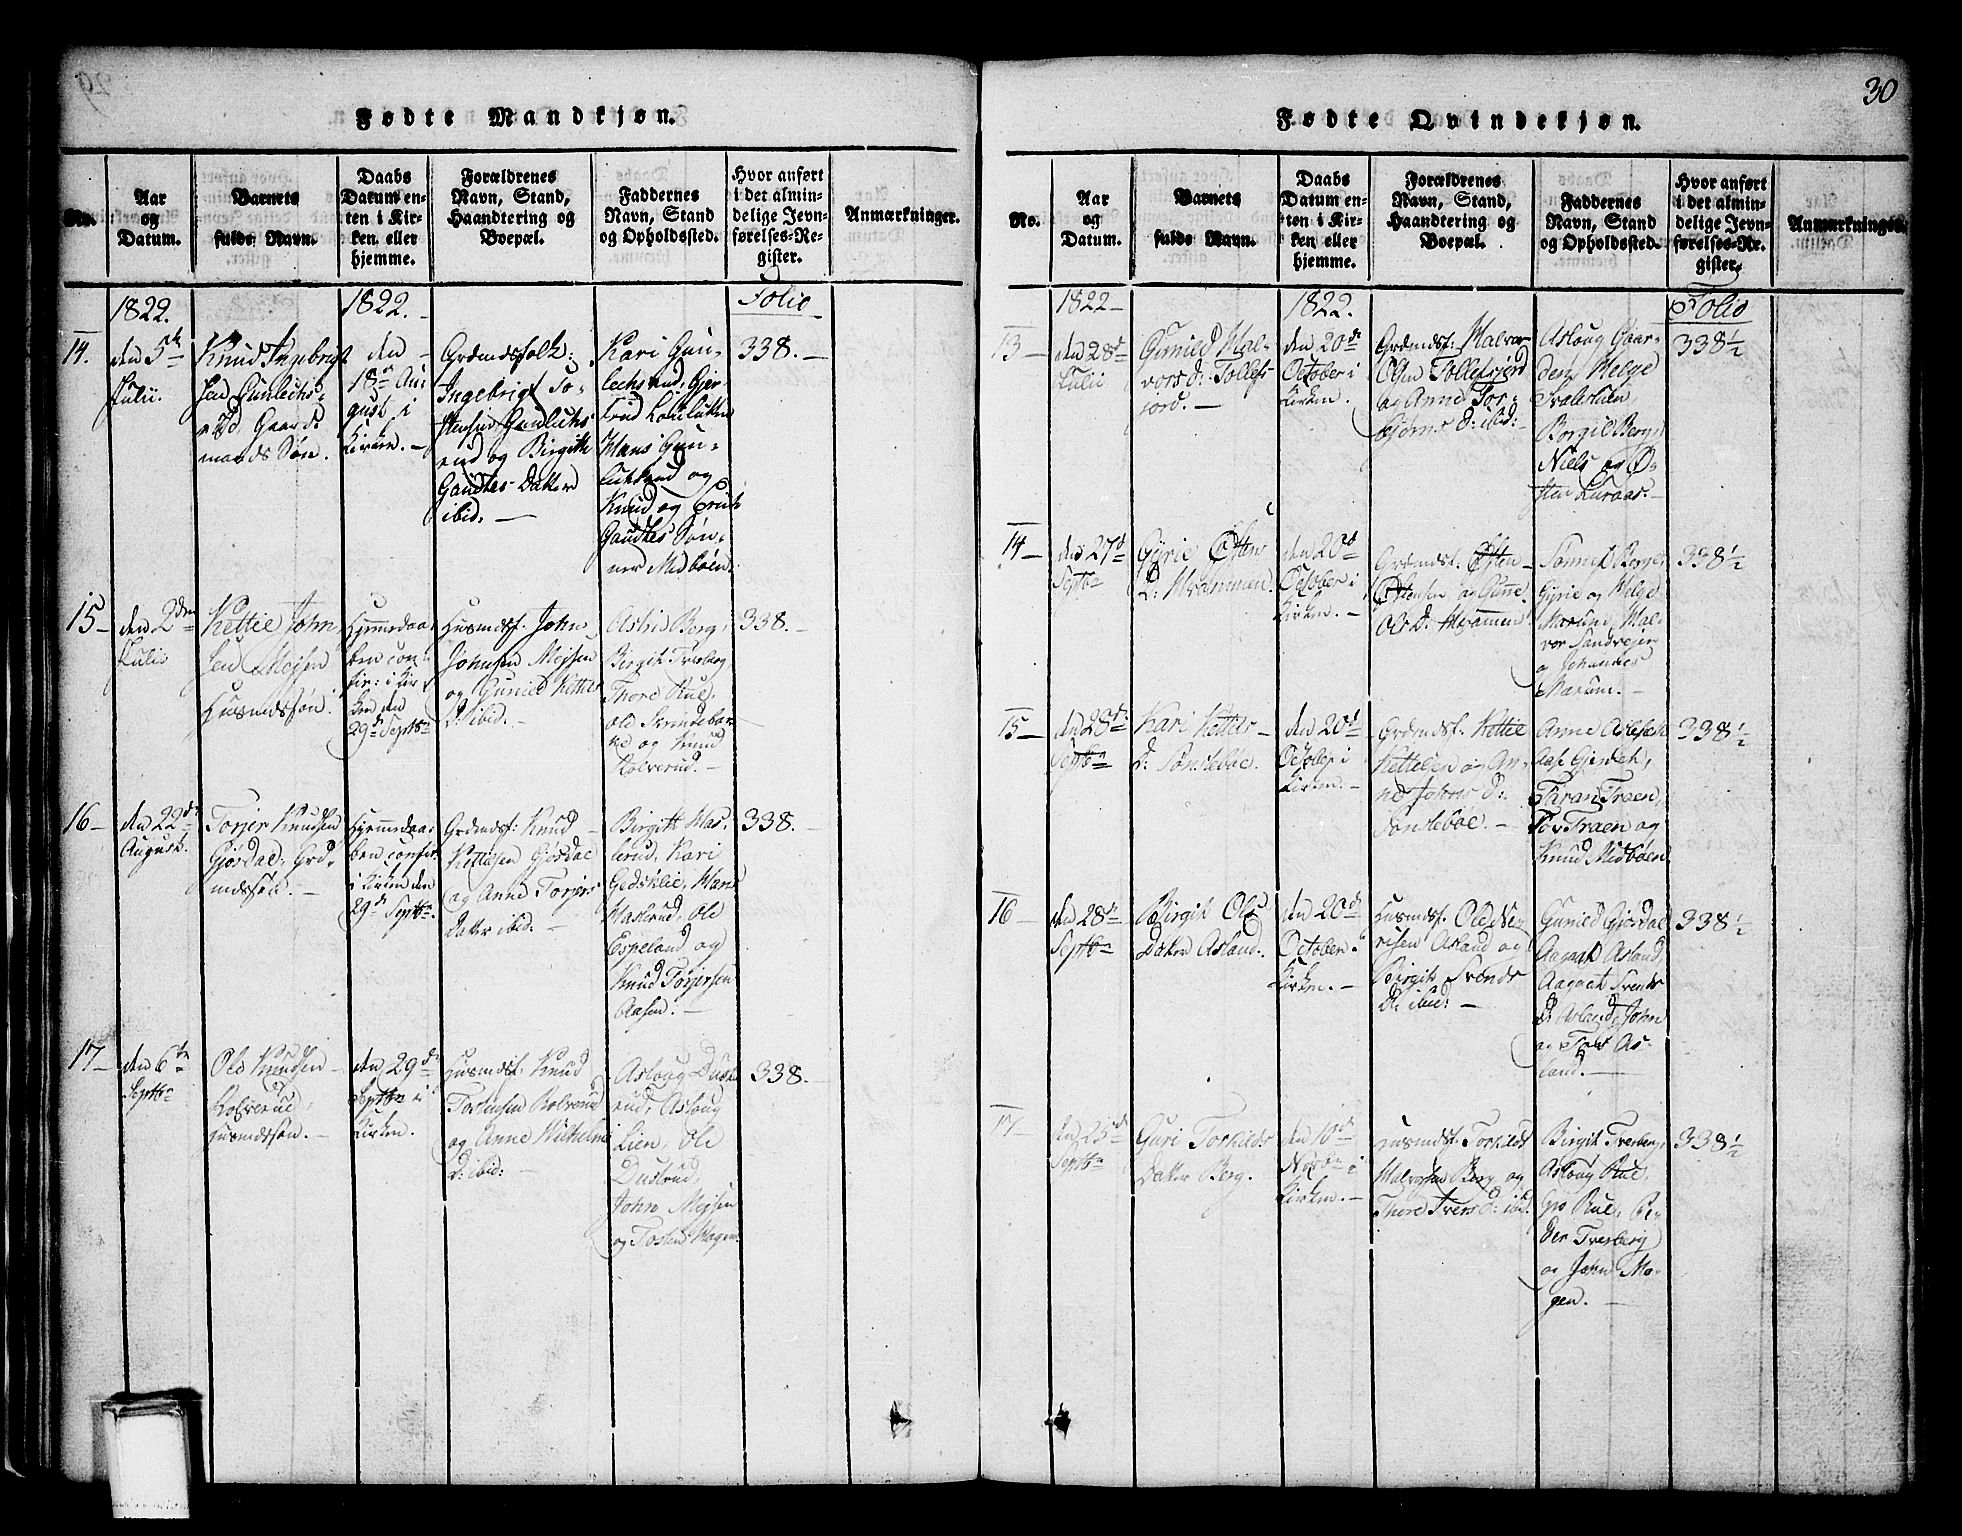 30
Fødte Mandkjøn.
No.
Aar
og
Datum.
Barnets
fulde Navn.
Daabs
Datum en-
ten i Kir-
ken eller
hjemme.
Forældrenes
Navn, Stand,
Haandtering og
Boepæl.
Faddernes
Navn, Stand
og Opholdssted.
Hvor anført
i det almin-
delige Jevn-
førelses-Re-
gister.
Anmærkninger.
1822.
1822.
Folio
14.
den 5te
Julii.
Knud Ingebrigt
sen Gunlechs-
rud Gaard-
mands Søn.
den
18de Au
gust i
Kirken.
Grdmdsfolk:
Ingebrigt To-
stensen Gunluchs
rud og Birgithe
Gaudtes Datter
ibid:
Kari Gun-
lechsrud, Gjer-
trud
Hans Gun-
luchsrud og
Knud og Erich
Gaudtes Søn-
ner Midbøen.
338.
15
den 2den
Julii
Kettil John
sen Mejsen
Husmdssøn.
Hjemmedaa-
ben con-
fir: i Kir
ken den
29de Septbr
Husmdsf. John
Johnsen Mejsen
og Gunild Kettils
D: ibid.
Astrid Berg,
Birgit Tvesberg,
Thore Rue,
Ole
og Knud
Rolverud.
338.
16
den 22de
August.
Torjer Knudsen
Gjørdal, Grd-
mdssøn.
Hjemmedaa-
ben confir:
i Kirken den
29de Septbr.
Grdmdsf: Knud
Kettilsen Gjørdal
og Anne Torjers
Datter ibid:
Birgith Has-
lerud, Kari
Gedsklie, Hans
Haslerud, Ole
Espeland og
Knud Torjersen
Aasen.
338.
17
den 6te
Septbr
Ole Knudsen
Rolverud,
Husmdssøn.
den 29de
Septbr i
Kirken.
Husmdsf. Knud
Tostensen Rolverud
og Anne Wilhelms
D: ibid:
Aslaug Duste
rud, Aslaug
Lien, Ole
Dusterud,
John Mejsen
og Tosten Hagen.
338.
Fødte Qvindekjøn.
No.
Aar
og
Datum.
Barnets
fulde Navn.
Daabs
Datum en-
ten i Kir-
ken eller
hjemme.
Forældrenes
Navn, Stand,
Haandtering og
Boepæl.
Faddernes
Navn, Stand
og Opholdssted.
Hvor anført
i det almin-
delige Jevn-
førelses-Re-
gister.
Anmærkninger.
1822
1822.
Folio
13
den 28de
Julii
Gunild Hal-
vors D: Tollefs
jord.
den 20de
October i
Kirken.
Grdmdsf: Halvor
Olsen Tollefsjord
og Anne Tor-
bjørns D: ibid:
Aslaug Gaar-
den, Helge
Borgil Berge,
Niels og Ø-
sten Luraas.
338½
14
den 27de
Septbr
Gyrie Østens
D: Hvammen.
den 20de
October i
Kirken.
Grdmdsf. Østen
Østensen og Gunne
Ols D: Hvammen
Gunild Berge,
Gyrie og Helge
Marum, Hal-
vor Sandvejen
og Johannes
Marum.
338½
15
den 28de
Septbr
Kari Kettils
D: Sønstebøe.
den 20de
October i
Kirken.
Grdmdsf. Kettil
Kettilsen og An-
ne Johns D:
Sønstebøe.
Anne
Aase Gjerdet,
Thran Traen,
Tov Traen og
Knud Midbøen
338½
16
den 28de
Septbr
Birgit Ols
Datter Asland.
den 20de
October i
Kirken.
Husmdsf. Ole
Asland og
Birgit Svends
D: ibid:
Gunild Gjørdal
Aagaat Asland,
Aagaat Svends
D: Asland, John
og Tov As-
land.
338½
17
den 25de
Septbr
Guri Torkilds
Datter Berg.
den 10de
Novbr i
Kirken.
Husmdsf. Torkild
Halvorsen Berg og
Thore Ivers D: ibid.
Birgit Tvesberg,
Aslaug Rue,
Gro Rue, Pe-
der Tvesberg
og John Ha-
gen.
338½